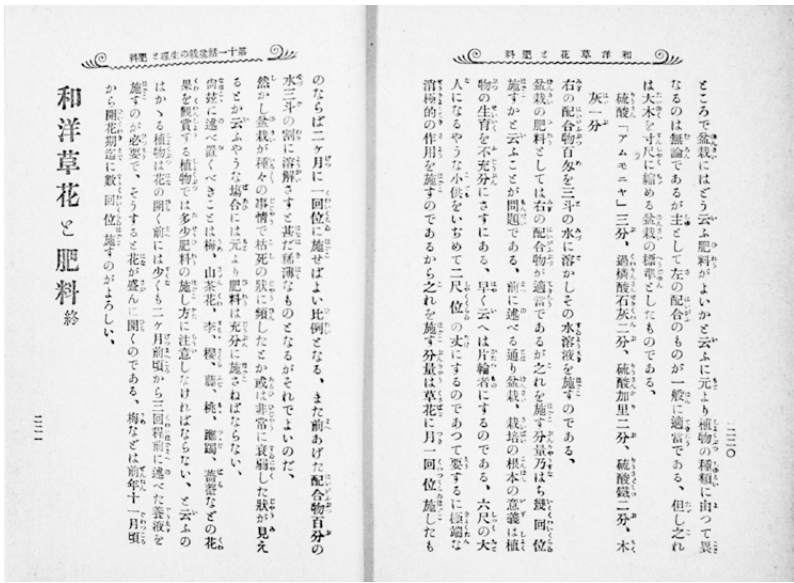 和洋草花と肥料
ところで盆栽にはどう云ふ肥料がよいかと云ふに元より植物の種類に由つて異
なるのは無論であるが主として左の配合のものが一般に適當である、但しこれ
は大木を寸尺に縮める盆栽の標準としたものである、
硫酸「アムモニヤ」三分、過燐酸石灰二分、硫酸加里二分、硫酸鐵二分、木
灰一分
右の配合物百匁を三斗の水に溶かしその水溶液を施すのである、
盆栽の肥料としては右の配合物が適當であるが之れを施す分量乃はち幾回位
施すかと云ふことが問題である、前に述べる通り盆栽、栽培の根本の意義は植
物の生育を不充分にさすにある、早く云へは片輪者にするのである、六尺の大
人になるやうな小供をいぢめて二尺位の丈にするのであつて要するに極端な
消極的の作用を施すのであるから之れを施す分量は草花に月一回位施したも
二二〇
第十一 盆栽の生理と肥料
のならば二ヶ月に一回位に施せばよい比例となる、また前あげた配合物百分の
水三斗の割に溶解さすと甚だ稀薄なものとなるがそれでよいのだ、
然かし盆栽が種々の事情で枯死の狀に頻したとか或は非常に衰弱した狀が見え
るとか云ふやうな塲合には元より肥料は充分に施さねばならない、
尙玆に述べ置くべきことは梅、山茶花、李、櫻、藤、桃、躑躅、薔薇などの花
果を觀賞する植物では多少肥料の施し方に注意しなければならない、と云ふの
はかゝる植物は花の開く前には少くも二ヶ月前頃から三回程前に述べた養液を
施すのが必要で、そうすると花が盛んに開くのである、梅などは前年十一月頃
から開花期迄に數回位施すのがよろしい、
和洋草花と肥料 終
二二一